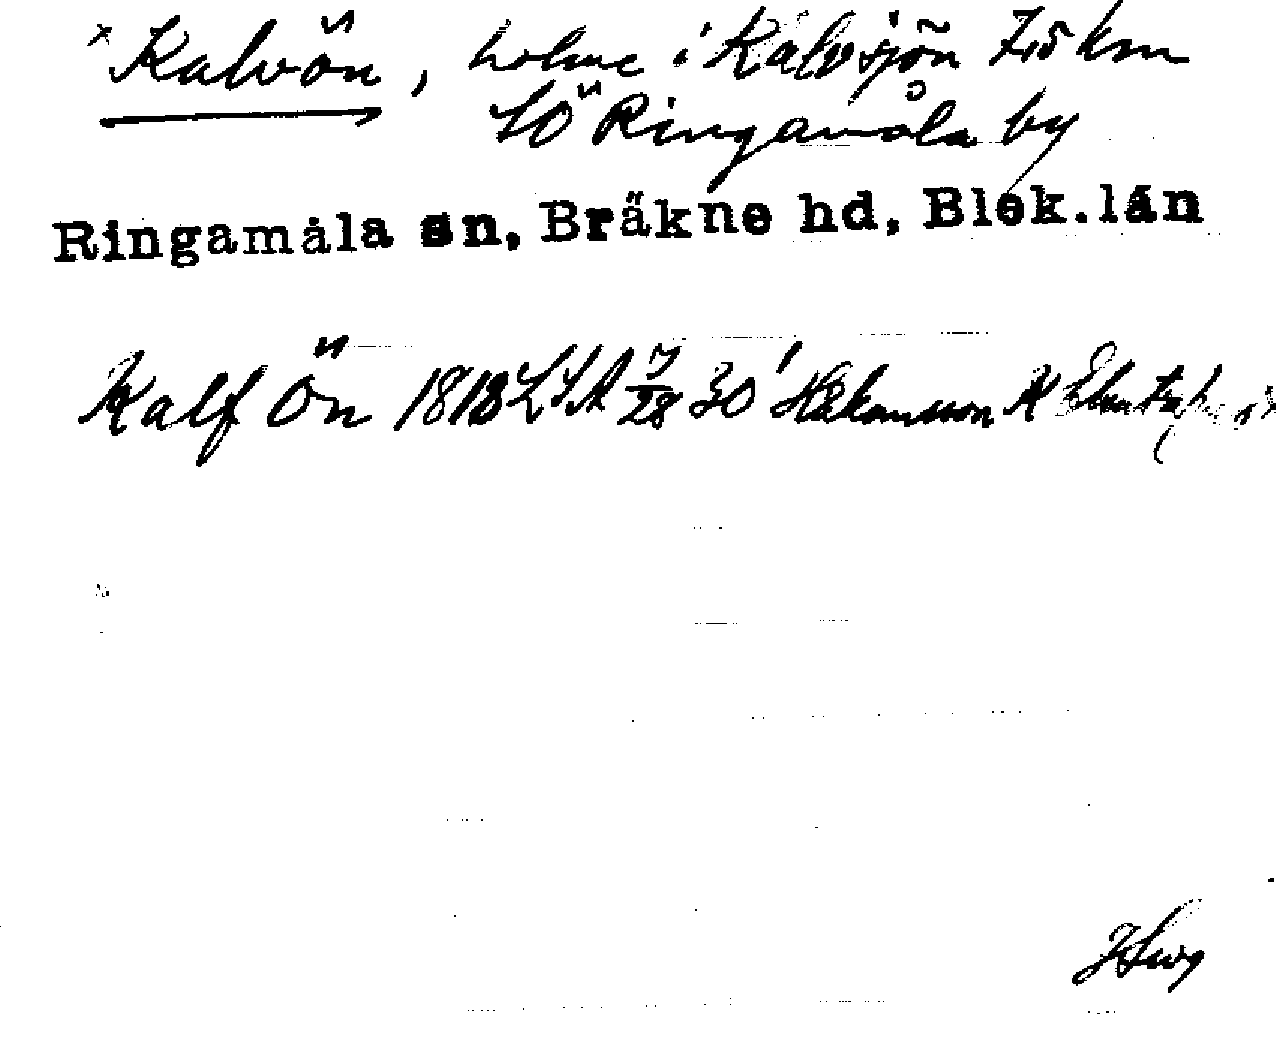 x Kalvön, holme i Kalvsjön 7,5 km
SÖ Ringamåla by
Ringamåla sn, Bräkne hd, Blek.län
Kalf Ön 1818 LSA 7/28 30 Håkansson K